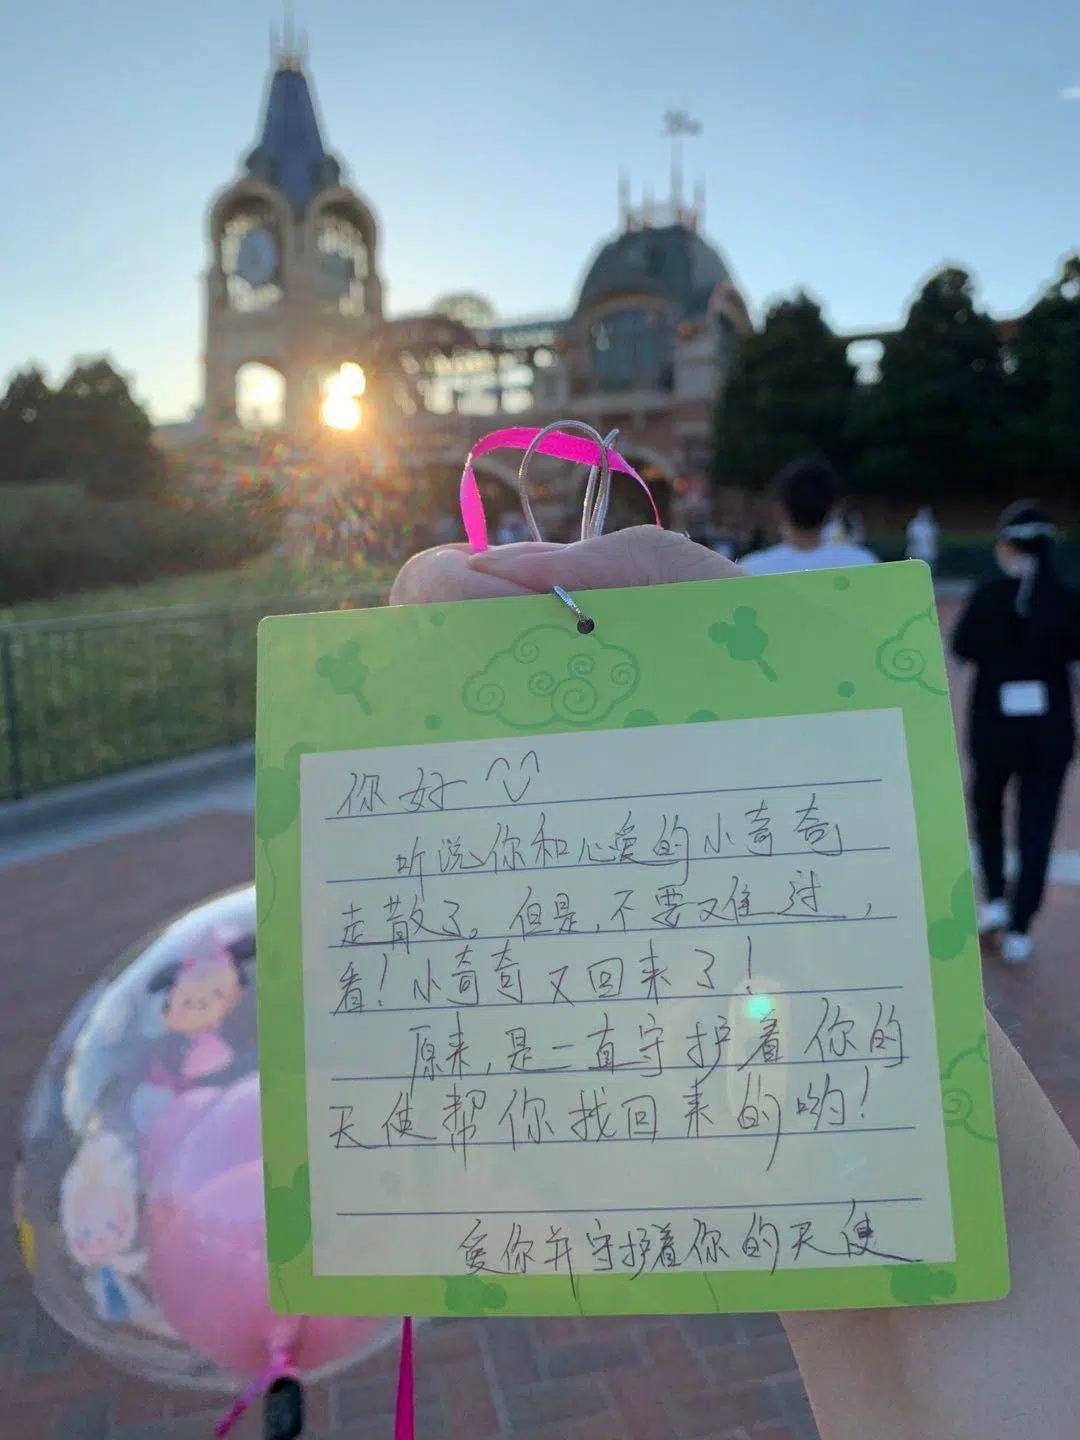 你好
听说你和心爱的小奇奇
走散了。但是,不要难过,
看!小奇奇又回来了!
原来,是一直守护着你的
天使帮你找回来的哟!
爱你并守护着你的天使